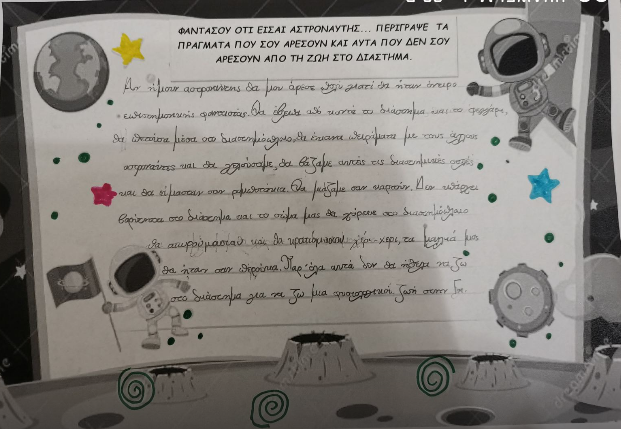 ΦΑΝΤΑΣΟΥ ΟΤΙ ΕΙΣΑΙ ΑΣΤΡΟΝΑΥΤΗΣ... ΠΕΡΙΓΡΑΨΕ ΤΑ
ΠΡΑΓΜΑΤΑ ΠΟΥ ΣΟΥ ΑΡΕΣΟΥΝ ΚΑΙ ΑΥΤΑ ΠΟΥ ΔΕΝ ΣΟΥ
ΑΡΕΣΟΥΝ ΑΠΟ ΤΗ ΖΩΗ ΣΤΟ ΔΙΑΣΤΗΜΑ.
Αν ήμουν αστροναύτης θα μου άρεσε πολύ γιατί θα ήταν όνειρο
επιστημονικής φαντασίας. Θα έβλεπα από κοντά το διάστημα και το φεγγάρι,
θα πετούσα μέσα στο διαστημόπλοιο, θα έκανα πειράματα με τους άλλους
αστροναύτες και θα γελούσαμε, θα βάζαμε αυτές τις διαστημικές στολές
και θα είμασταν σαν ρομποτάκια. Θα μοιάζαμε σαν Δεν υπάρχει
βαρύτητα στο διάστημα και το σώμα μας θα στο διαστημόπλοιο
θα και θα χέρι-χέρι, τα μαλλιά μας
θα ήταν σαν Παρ' όλα αυτά δεν θα ήθελα να ζω
στο διάστημα για να ζω μια φυσιολογική ζωή στην Γη.